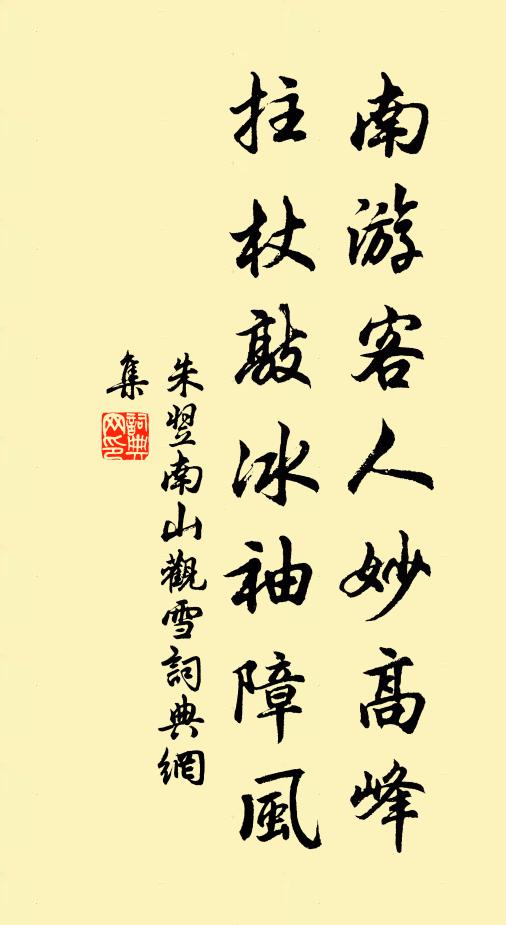 南游客人妙高峰
拄杖敲冰袖障風
朱翌南山觀雪詞典網
集
詞典
网印